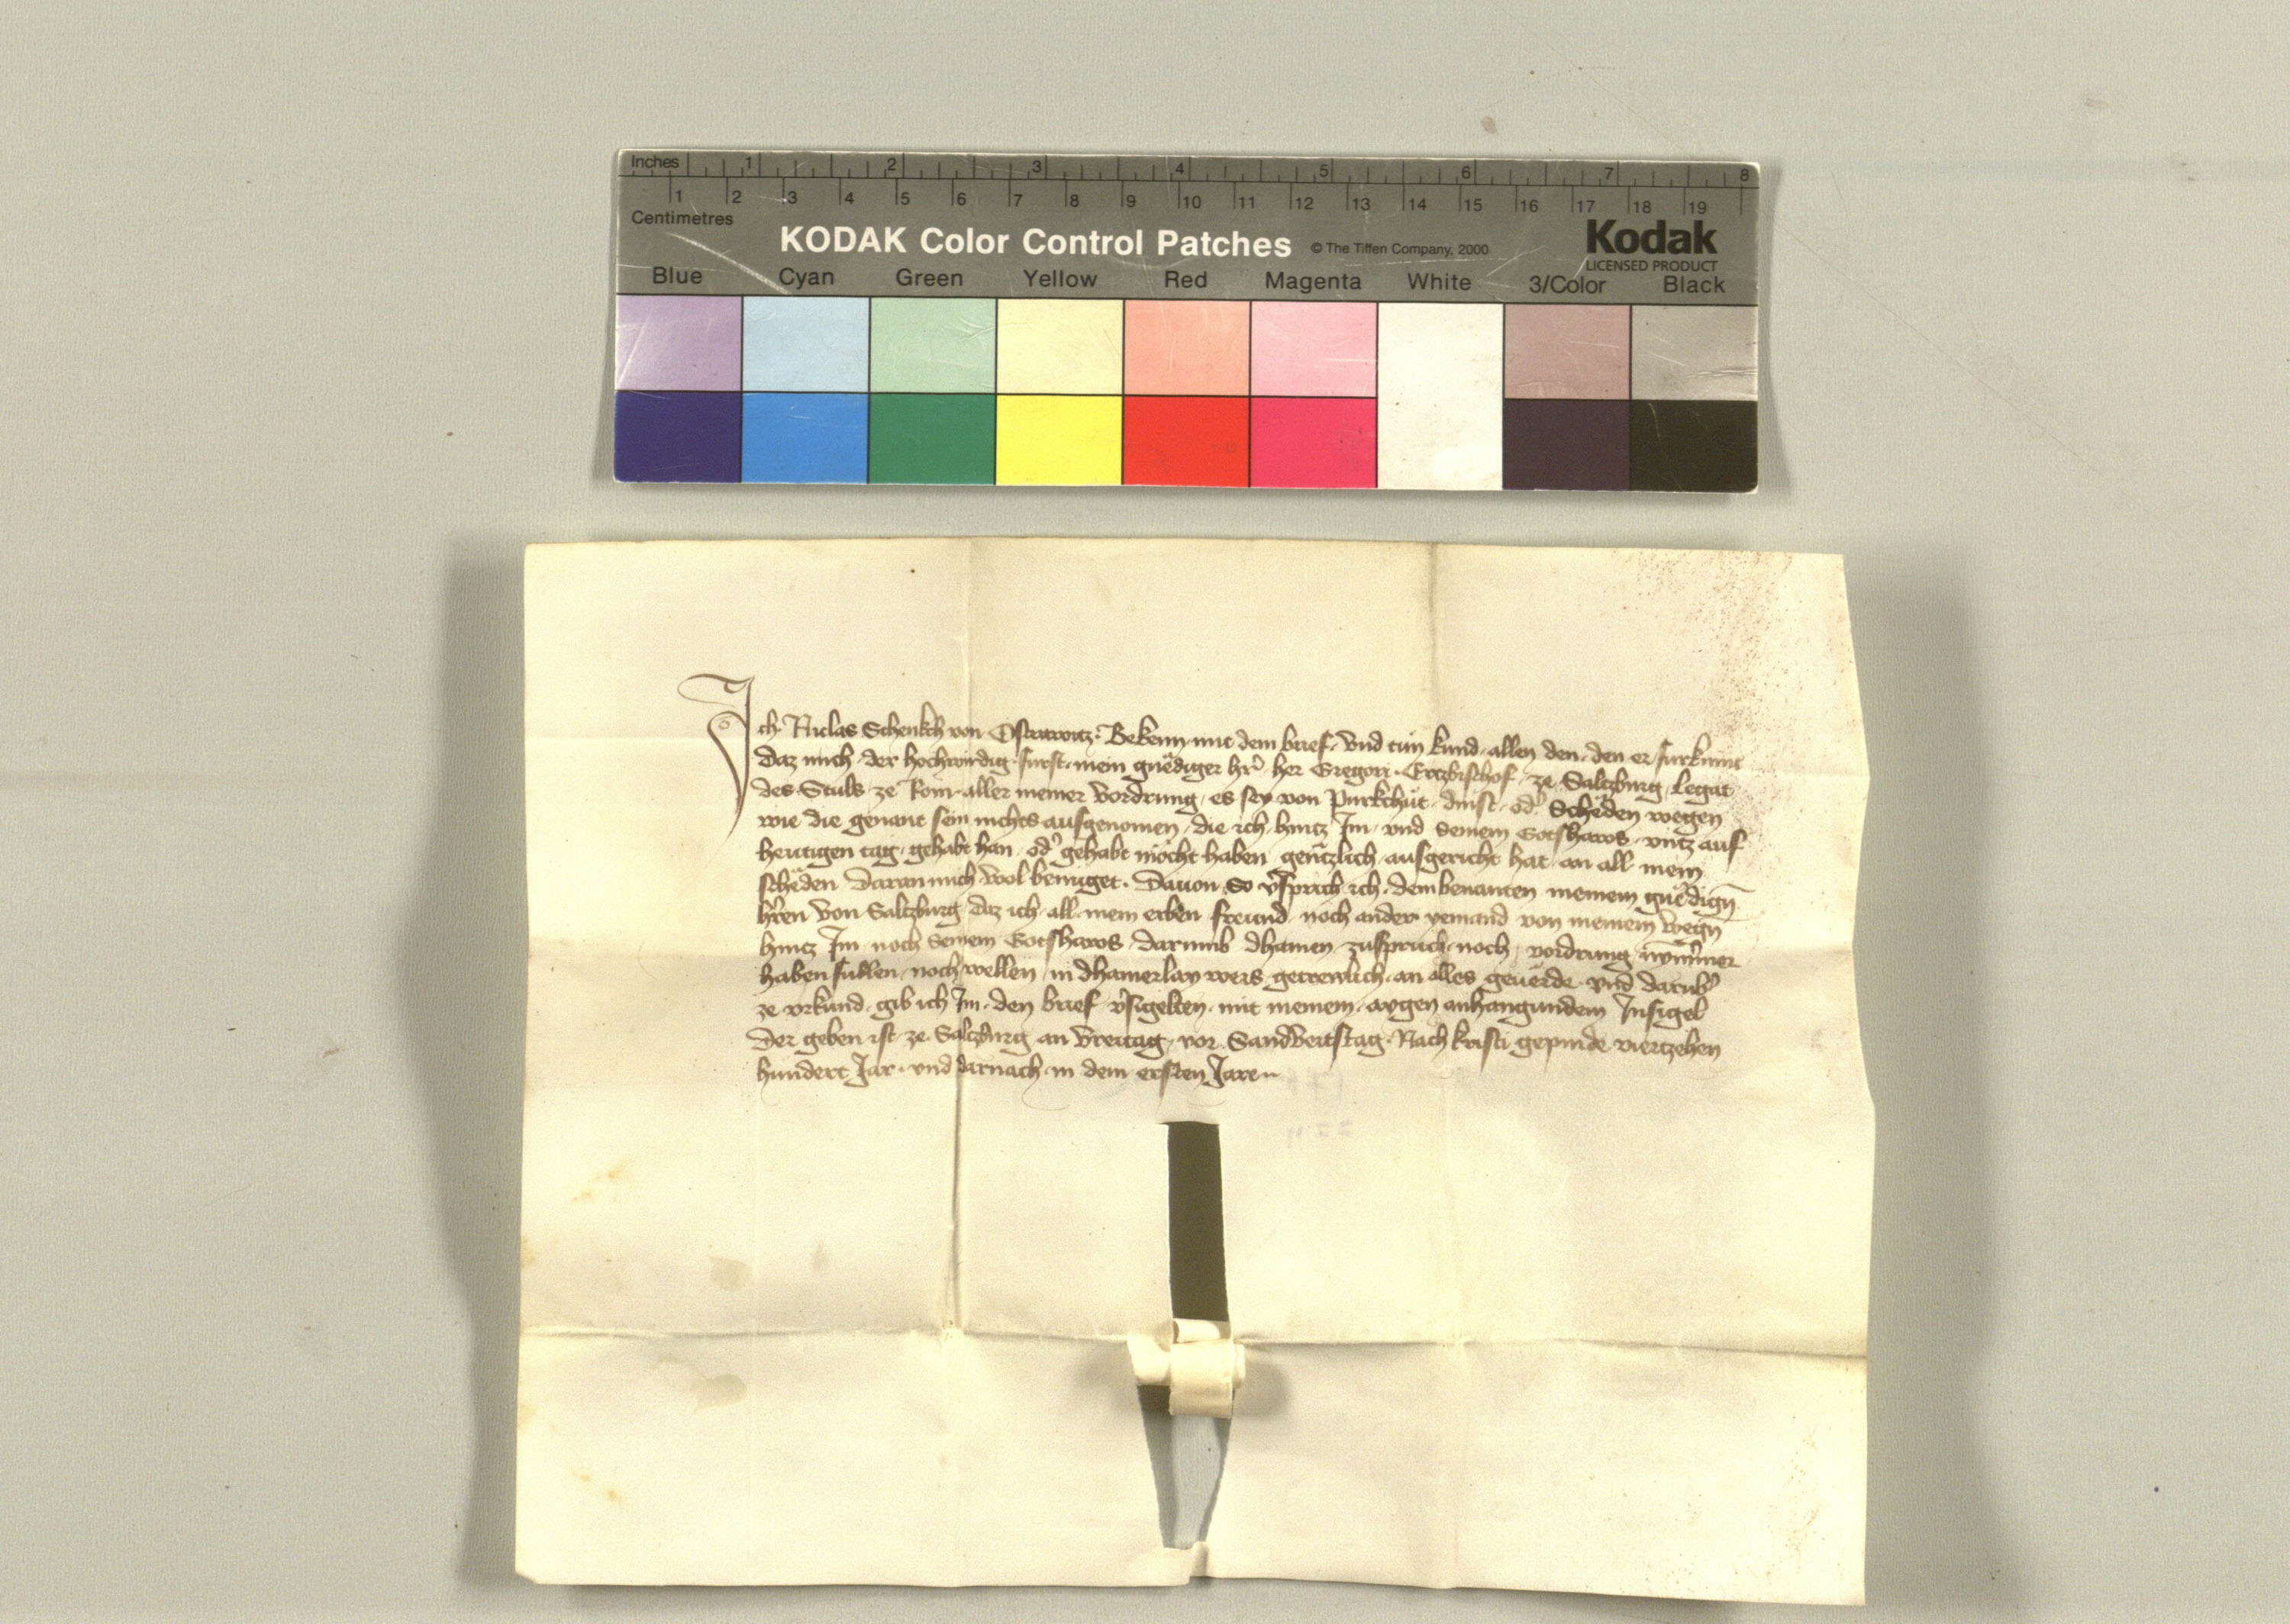 Inches 1 2 3 4 5 6 7 8
1 2 3 4 5 6 7 8 9 10 11 12 13 14 15 16 17 18 19
Centimetres
KODAK Color Control Patches © The Tiffen Company, 2000 Kodak
LICENSED PRODUCT
Blue Cyan Green Yellow Red Magenta White 3/Color Black
Ich Niclas Schenkch von Osterwitz Bekenn mit dem brief und tun kund allen den den er furkumt
daz mich der hochwirdig furst mein gnediger hr̄ her Gregori Ertzbischof ze Saltzburg legat
des Stuls ze Rom aller meiner vordrung es sey von Purkchut dinst od' Scheden wegen
wie die genant sein nichts ausgenomen die ich hintz Im und seinem Gotshaws untz auf
heutigen tag gehabt han od' gehabt möcht haben gentzlich ausgericht hat an all mein
scheden daran mich wol benuget. Dauon So v'sprich ich dem benanten meinem gnedign̄
hr̄en von Saltzburg daz ich all mein erben freund noch ander yemand von meinem wegn̄
hintz Im noch seinem Gotshaws darumb dhainen zuspruch noch vordrung nym̄mer
haben sullen noch wellen in dhainerlay weis getrewlich an alles geuerde und darub'
ze urkund gib ich Im den brief v'sigelten mit meinem aygen anhangundem Insigel
Der geben ist ze Saltzburg an Vreitag vor Sand Veitstag Nach kristi gepurde viertzehen
hundert Jar und darnach in dem ersten Jare